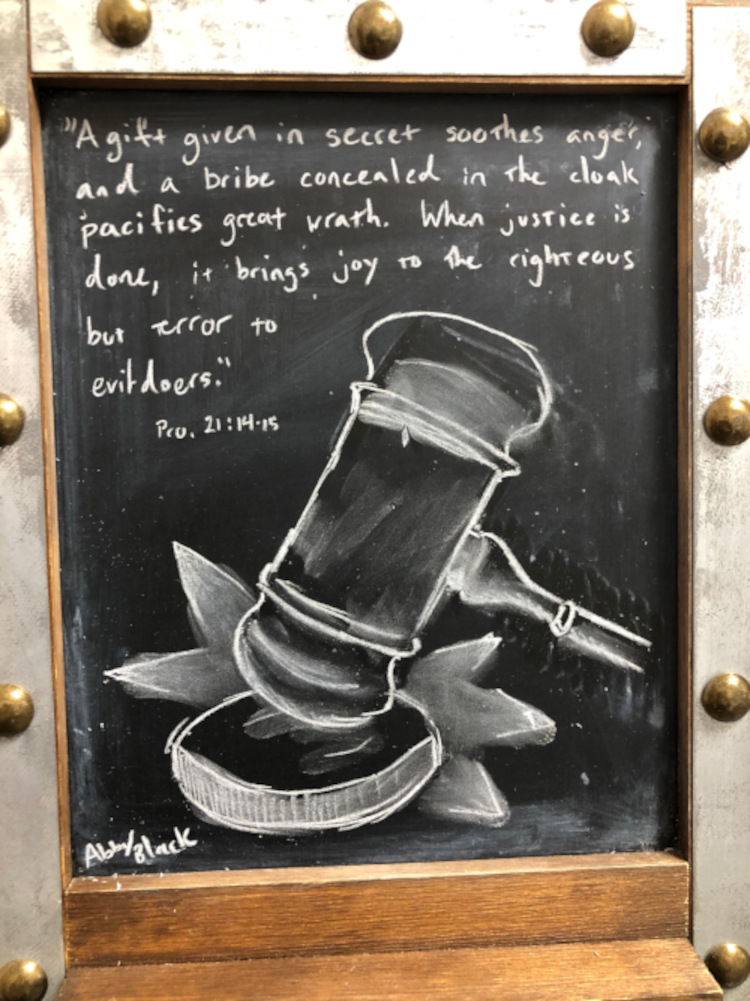 "A gift given in secret soothes anger,
and a bribe concealed in the cloak
pacifies great wrath. When justice is
done, it brings joy to the righteous
but terror to
evildoers."
Pro. 21:14-15
Abby Black